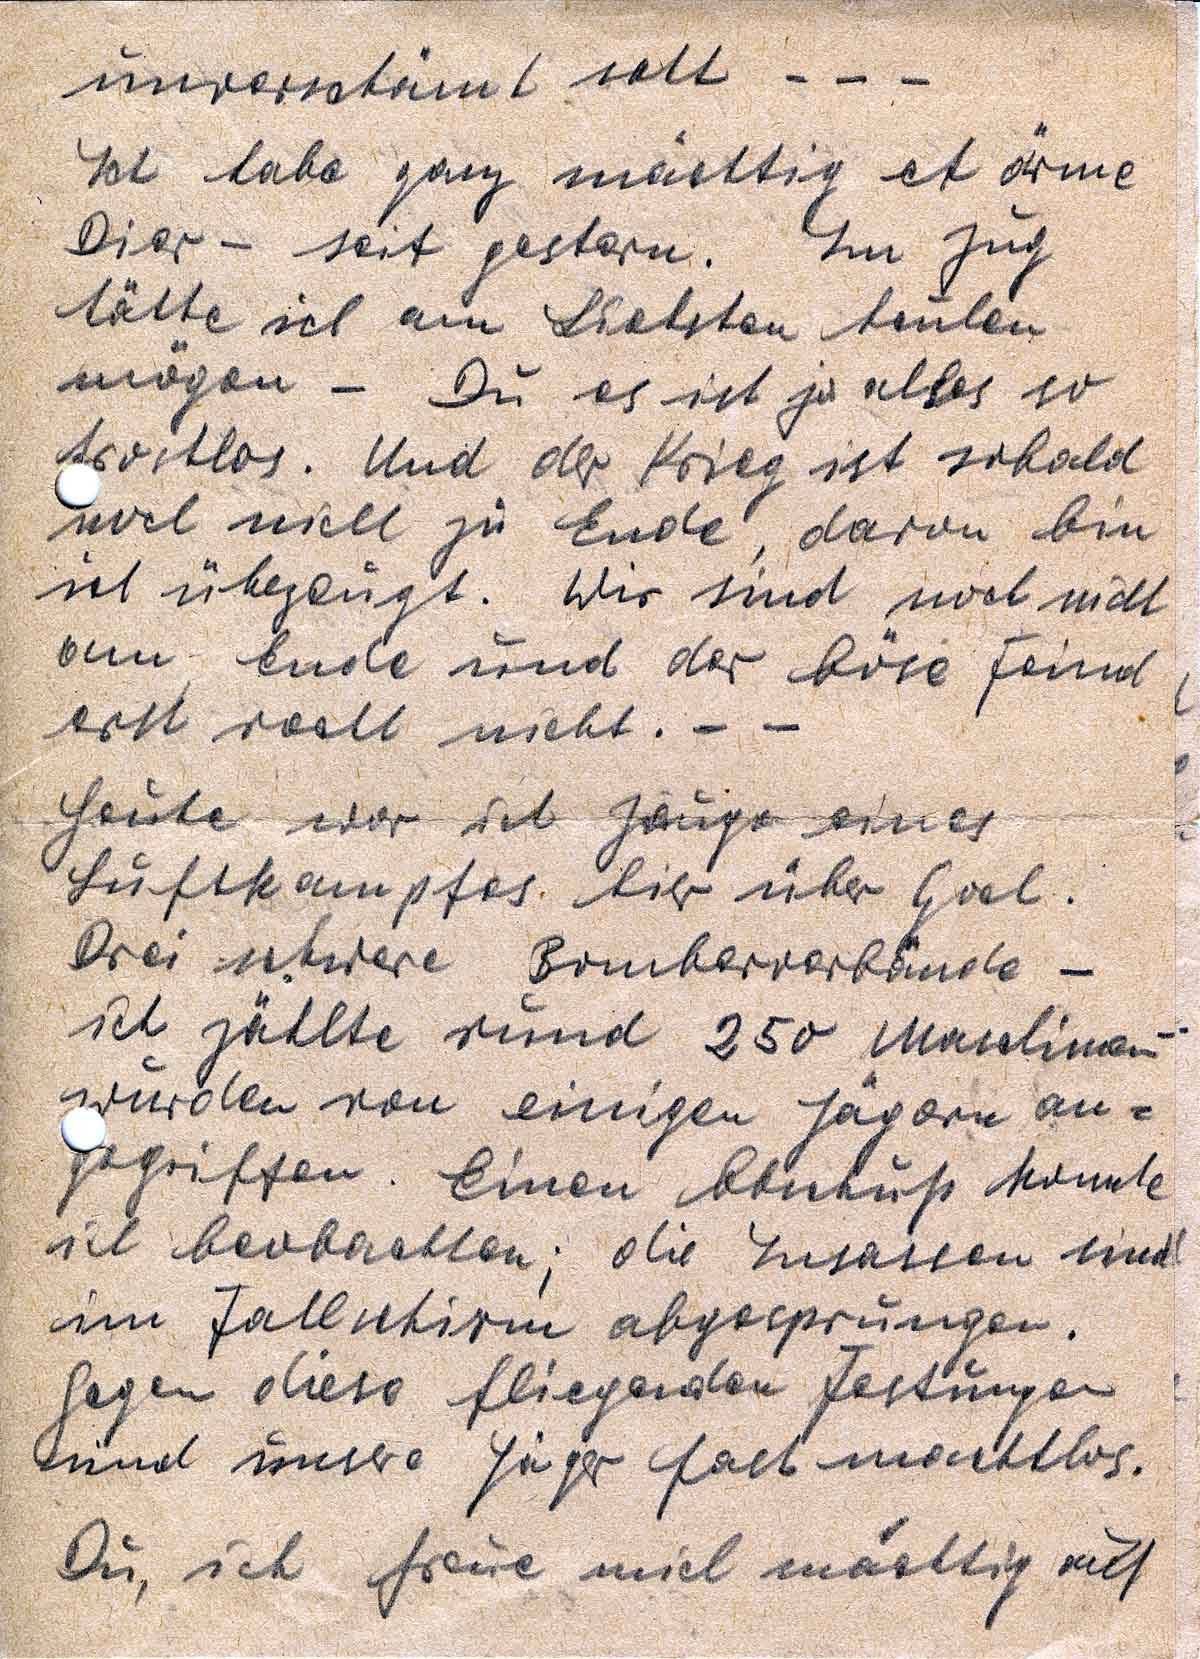 unverschämt satt - - -
Ich habe ganz mächtig et ärme
Dier - seit gestern. Im Zug
hätte ich am Liebsten heulen
mögen - Du es ist ja alles so
trostlos. Und der Krieg ist sobald
noch nicht zu Ende, davon bin
ich überzeugt. Wir sind noch nicht
am Ende und der böse Feind
erst recht nicht. - -
Heute war ich Zeuge eines
Luftkampfes hier über Goch.
Drei schwere Bomberverbände -
ich zählte rund 250 Maschinen -
wurden von einigen Jägern an=
gegriffen. Einen Abschuß konnte
ich beobachten; die Insassen sind
im Fallschirm abgesprungen.
Gegen diese fliegenden Festungen
sind unsere Jäger fast machtlos.
Du, ich freue mich mächtig auf